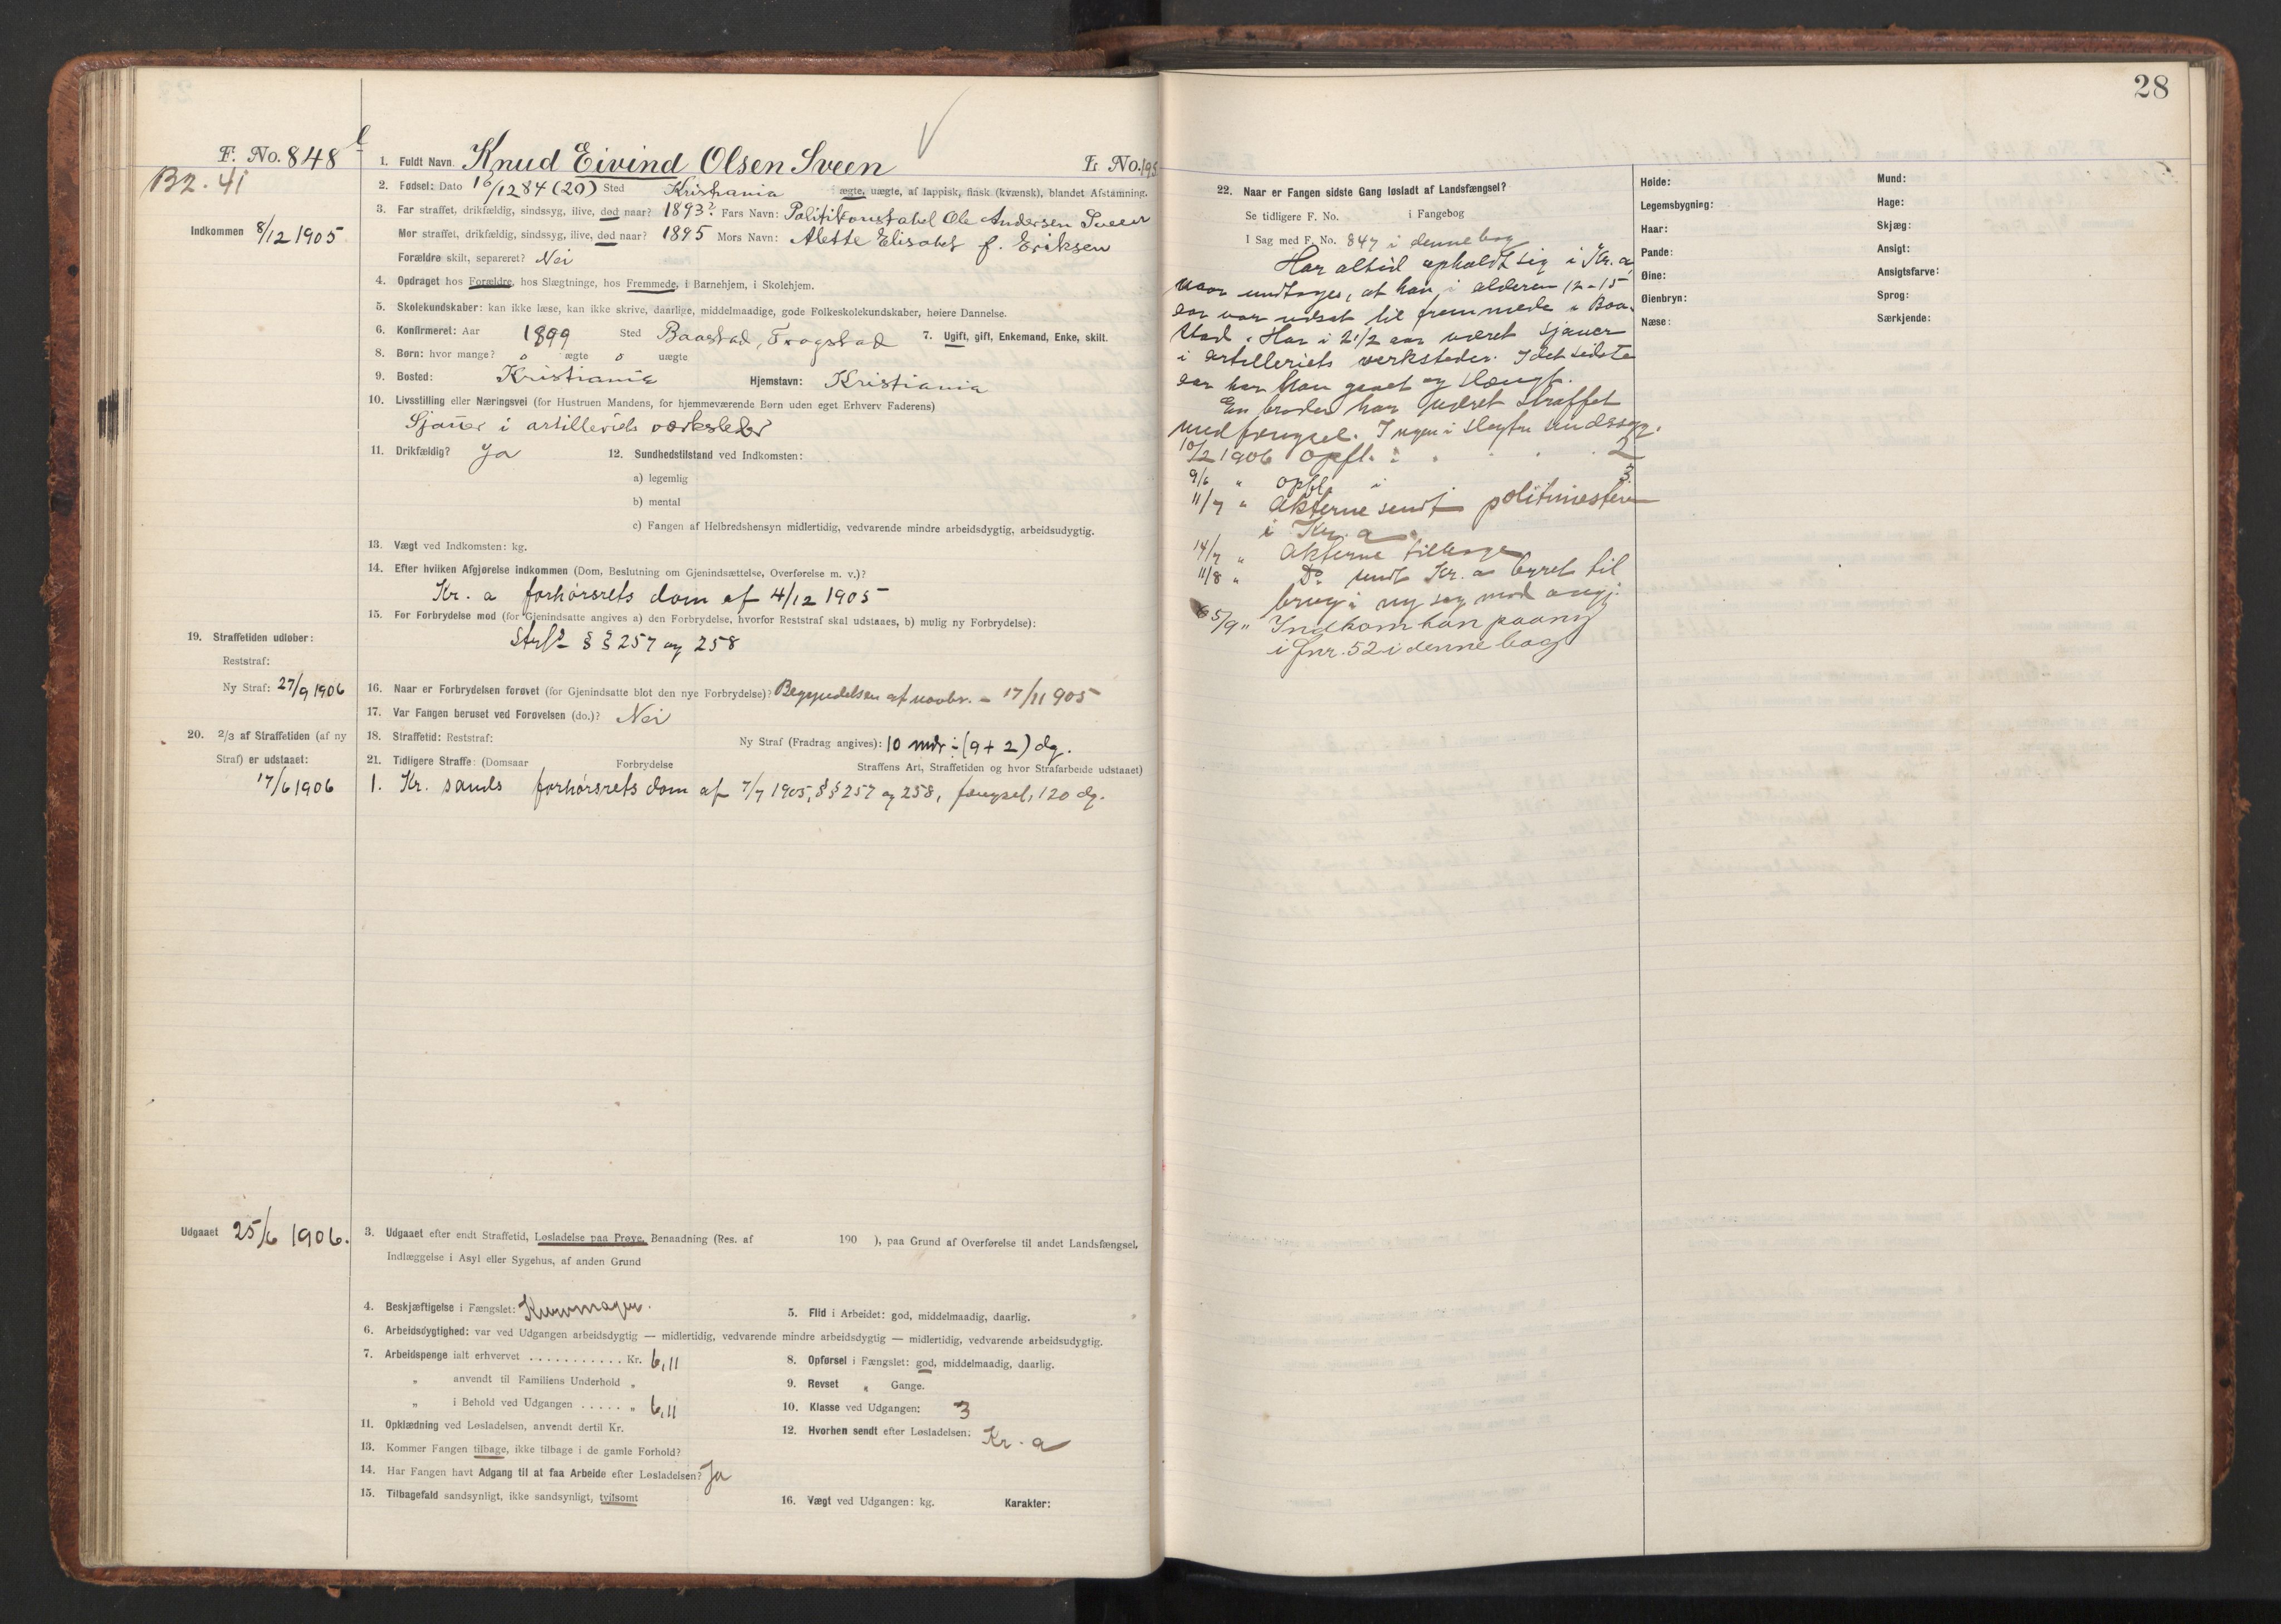 F. No. 848
B2. 41
1. Fuldt Navn. Knud Eivind Olsen Sveen L No. 195
2. Fødsel: Dato 16/12 84 (20) Sted Kristiania ægte, uægte, af lappisk, finsk (kvænsk), blandet Afstamning.
3. Far straffet, drikfældig, sindssyg, ilive, død naar? 1893? Fars Navn: Politikonstabel Ole Andersen Sveen
Indkommen 8/12 1905
Mor straffet, drikfældig, sindssyg, ilive, død naar? 1895 Mors Navn: Alette Elisabet f. Eriksen
Forældre skilt, separeret? Nei
4. Opdraget hos Forældre, hos Slægtninge, hos Fremmede, i Barnehjem, i Skolehjem.
5. Skolekundskaber: kan ikke læse, kan ikke skrive, daarlige, middelmaadige, gode Folkeskolekundskaber, høiere Dannelse.
6. Konfirmeret: Aar 1899 Sted Baastad, Trøgstad 7. Ugift, gift, Enkemand, Enke, skilt.
8. Børn: hvor mange? o ægte o uægte
9. Bosted: Kristiania Hjemstavn: Kristiania
10. Livsstilling eller Næringsvei (for Hustruen Mandens, for hjemmeværende Børn uden eget Erhverv Faderens)
Sjauer i artilleriets værksteder
11. Drikfældig? Ja 12. Sundhedstilstand ved Indkomsten:
a) legemlig
b) mental
c) Fangen af Helbredshensyn midlertidig, vedvarende mindre arbeidsdygtig, arbeidsudygtig.
13. Vægt ved Indkomsten: kg.
14. Efter hvilken Afgjørelse indkommen (Dom, Beslutning om Gjenindsættelse, Overførelse m. v.)?
Kr. a forhørsrets dom af 4/12 1905
15. For Forbrydelse mod (for Gjenindsatte angives a) den Forbrydelse, hvorfor Reststraf skal udstaaes, b) mulig ny Forbrydelse):
Strfl §§ 257 og 258
19. Straffetiden udløber:
Reststraf:
Ny Straf: 27/9 1906
16. Naar er Forbrydelsen forøvet (for Gjenindsatte blot den nye Forbrydelse)? Begyndelsen af novbr. - 17/11 905
17. Var Fangen beruset ved Forøvelsen (do.)? Nei
20. 2/3 af Straffetiden (af ny Straf) er udstaaet:
17/6 1906
18. Straffetid: Reststraf: Ny Straf (Fradrag angives): 10 mdr ÷ (9 + 2) dg.
21. Tidligere Straffe: (Domsaar Forbrydelse Straffens Art, Straffetiden og hvor Strafarbeide udstaaet)
1. Kr. sands forhørsrets dom af 7/7 1905, §§ 257 og 258, fængsel, 120 dg.
Udgaaet 25/6 1906.
3. Udgaaet efter endt Straffetid, Løsladelse paa Prøve, Benaadning (Res. af 190 ), paa Grund af Overførelse til andet Landsfængsel,
Indlæggelse i Asyl eller Sygehus, af anden Grund
4. Beskjæftigelse i Fængslet: Kurvmager. 5. Flid i Arbeidet: god, middelmaadig, daarlig.
6. Arbeidsdygtighed: var ved Udgangen arbeidsdygtig — midlertidig, vedvarende mindre arbeidsdygtig — midlertidig, vedvarende arbeidsudygtig.
7. Arbeidspenge ialt erhvervet . . . . . . . . . . . Kr. 6,11 8. Opførsel i Fængslet: god, middelmaadig, daarlig.
" anvendt til Familiens Underhold " 9. Revset " Gange.
" i Behold ved Udgangen . . . . . " 6,11 10. Klasse ved Udgangen: 3
11. Opklædning ved Løsladelsen, anvendt dertil Kr. 12. Hvorhen sendt efter Løsladelsen: Kr. a
13. Kommer Fangen tilbage, ikke tilbage i de gamle Forhold?
14. Har Fangen havt Adgang til at faa Arbeide efter Løsladelsen? Ja
15. Tilbagefald sandsynligt, ikke sandsynligt, tvilsomt 16. Vægt ved Udgangen: kg. Karakter:
28
22. Naar er Fangen sidste Gang løsladt af Landsfængsel?
Se tidligere F. No. i Fangebog
I Sag med F. No. 847 i denne bog
Har altid opholdt sig i Kr. a,
naar undtages, at han, i alderen 12-15
aar var udsat til fremmede i Baa-
stad. Har i 2 1/2 aar været sjauer
i artilleriets verksteder. I det sidste
aar har han gaaet og slængt.
En broder har været straffet
med fængsel. Ingen i slegten sindssyg.
10/2 1906 opfl. i . . . 2
9/6 " opfl. i 3
11/7 " Akterne sendt politimesteren
i Kr. a.
14/7 " Akterne tilbage
11/8 " Do sendt Kr. a byret til
brug i ny sag mod angj.
5/9 " Indkom han paany
i fnr. 52 i denne bog
Høide:
Legemsbygning:
Haar:
Pande:
Øine:
Øienbryn:
Næse:
Mund:
Hage:
Skjæg:
Ansigt:
Ansigtsfarve:
Sprog:
Særkjende: